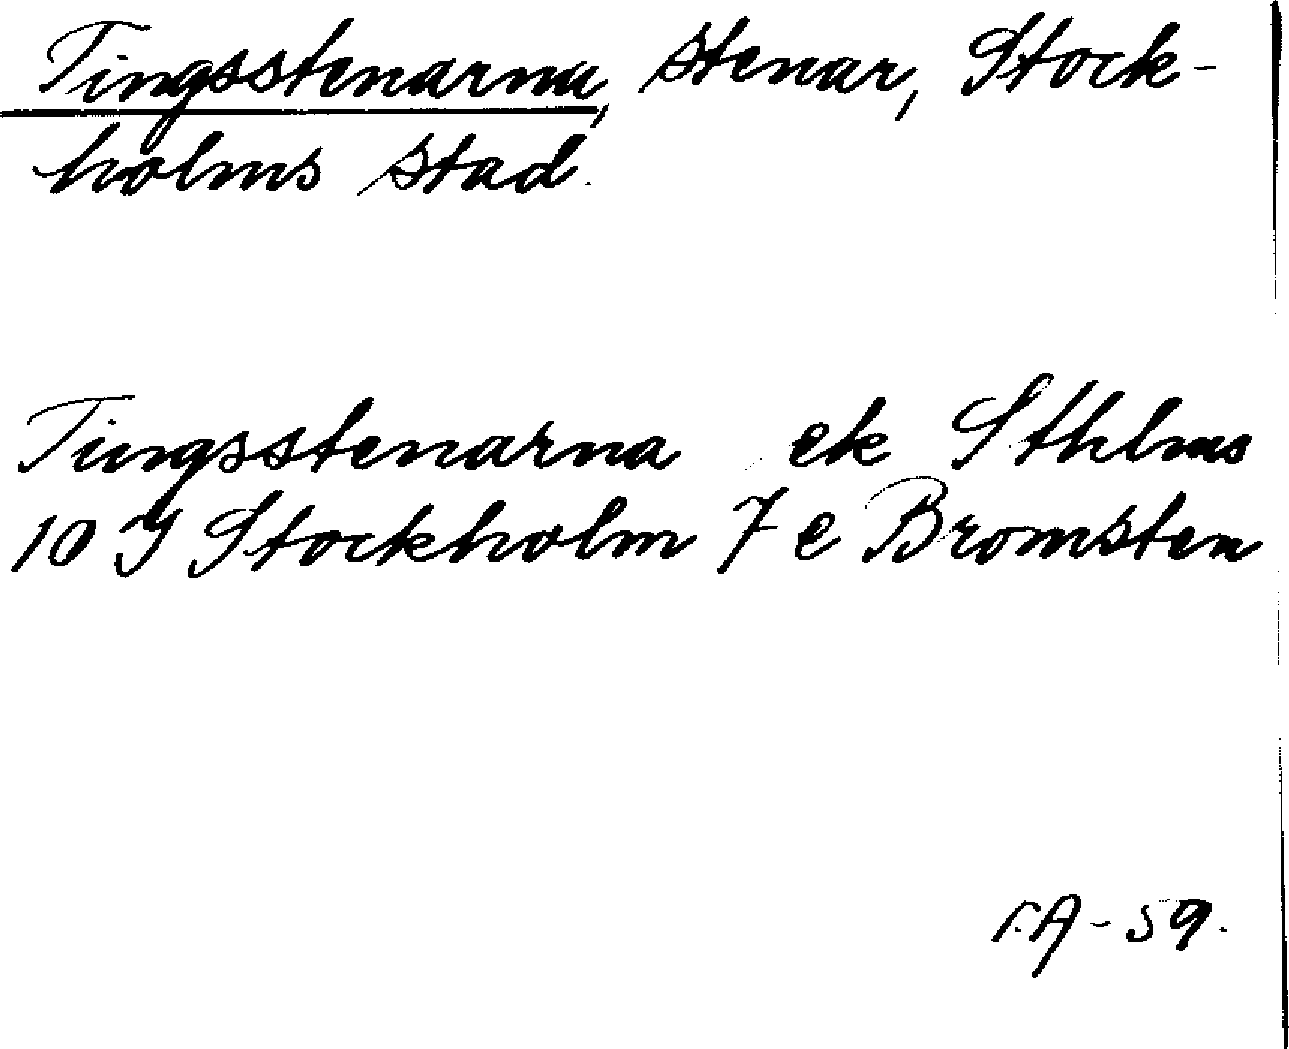 Tingsstenarna, stenar, Stock-
holms stad.
Tingsstenarna ek Sthlms
10 I Stockholm 7 e Bromsten
-59.